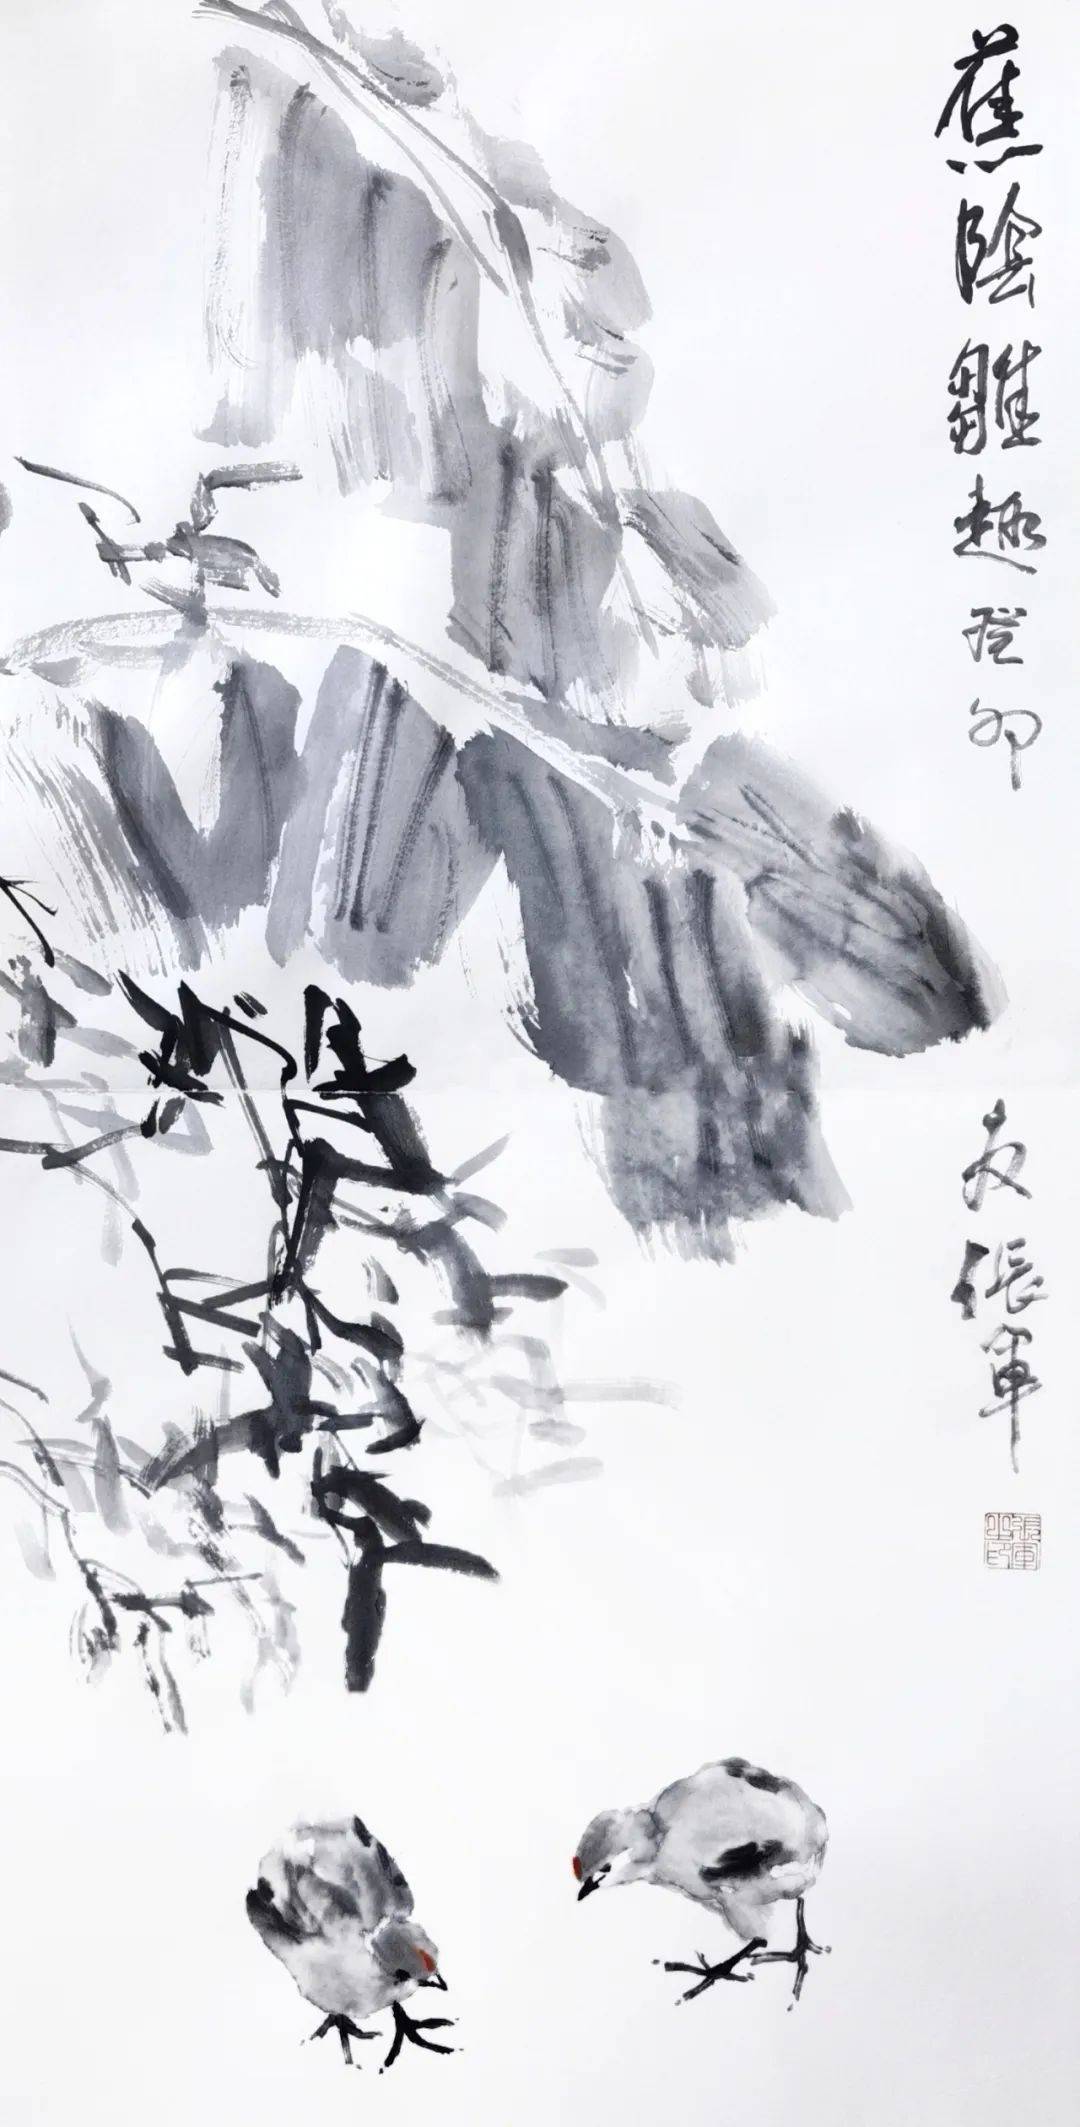 蕉陰雛趣癸卯
夏張軍
張軍之印